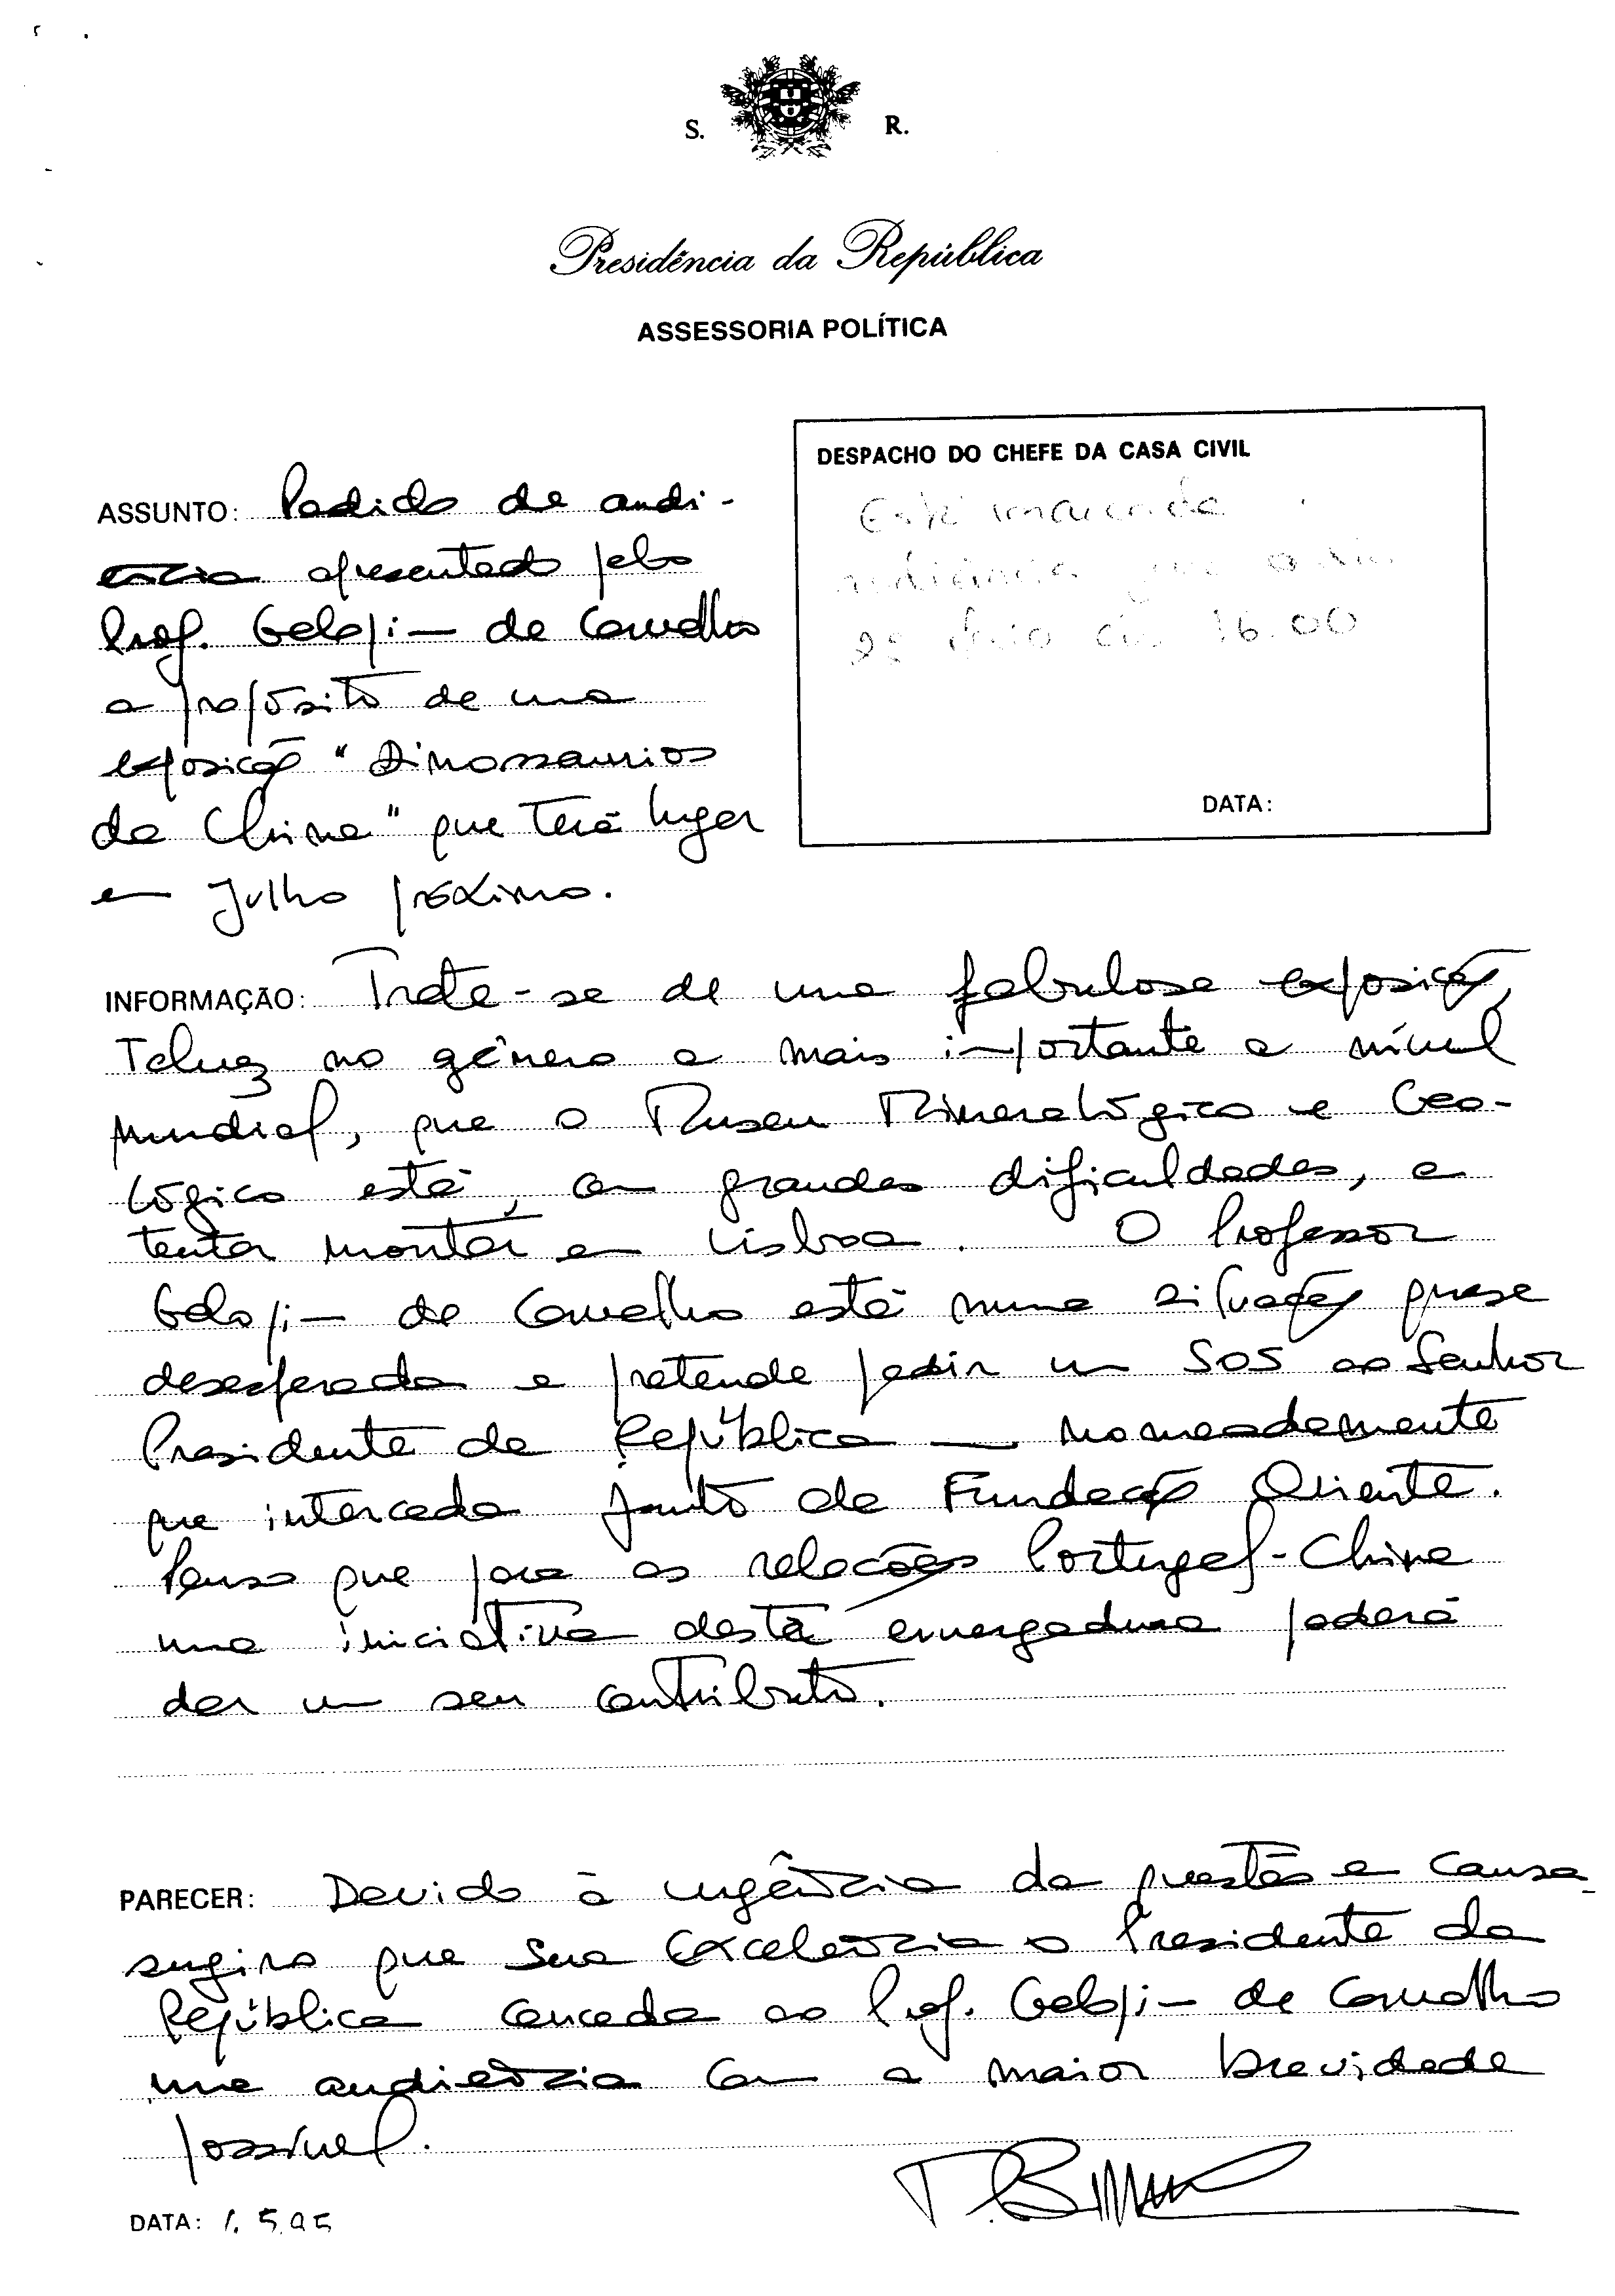 S. R.
Presidência da República
ASSESSORIA POLÍTICA
DESPACHO DO CHEFE DA CASA CIVIL
Está marcada
audiência
Maio 16.00
DATA:
ASSUNTO: Pedido de audi-
ência apresentado pelo
Prof. Galopim de Carvalho
a propósito de uma
exposição "Dinossaurios
da China" que terá lugar
em Julho próximo.
INFORMAÇÃO: Trata-se de uma fabulosa exposição,
Talvez no género a mais importante a nível
mundial, que o Museu Mineralógico e Geo-
lógico está, com grandes dificuldades, a
tentar montar em Lisboa. O Professor
Galopim de Carvalho está numa situação quase
desesperada e pretende pedir um SOS ao Senhor
Presidente da República — nomeadamente
que interceda junto da Fundação Oriente.
Penso que para as relações Portugal-China
uma iniciativa desta envergadura poderá
dar um seu contributo.
PARECER: Devido à urgência da questão em causa
sugiro que Sua Excelência o Presidente da
República conceda ao Prof. Galopim de Carvalho
uma audiência com a maior brevidade
possível.
DATA: 1.5.95